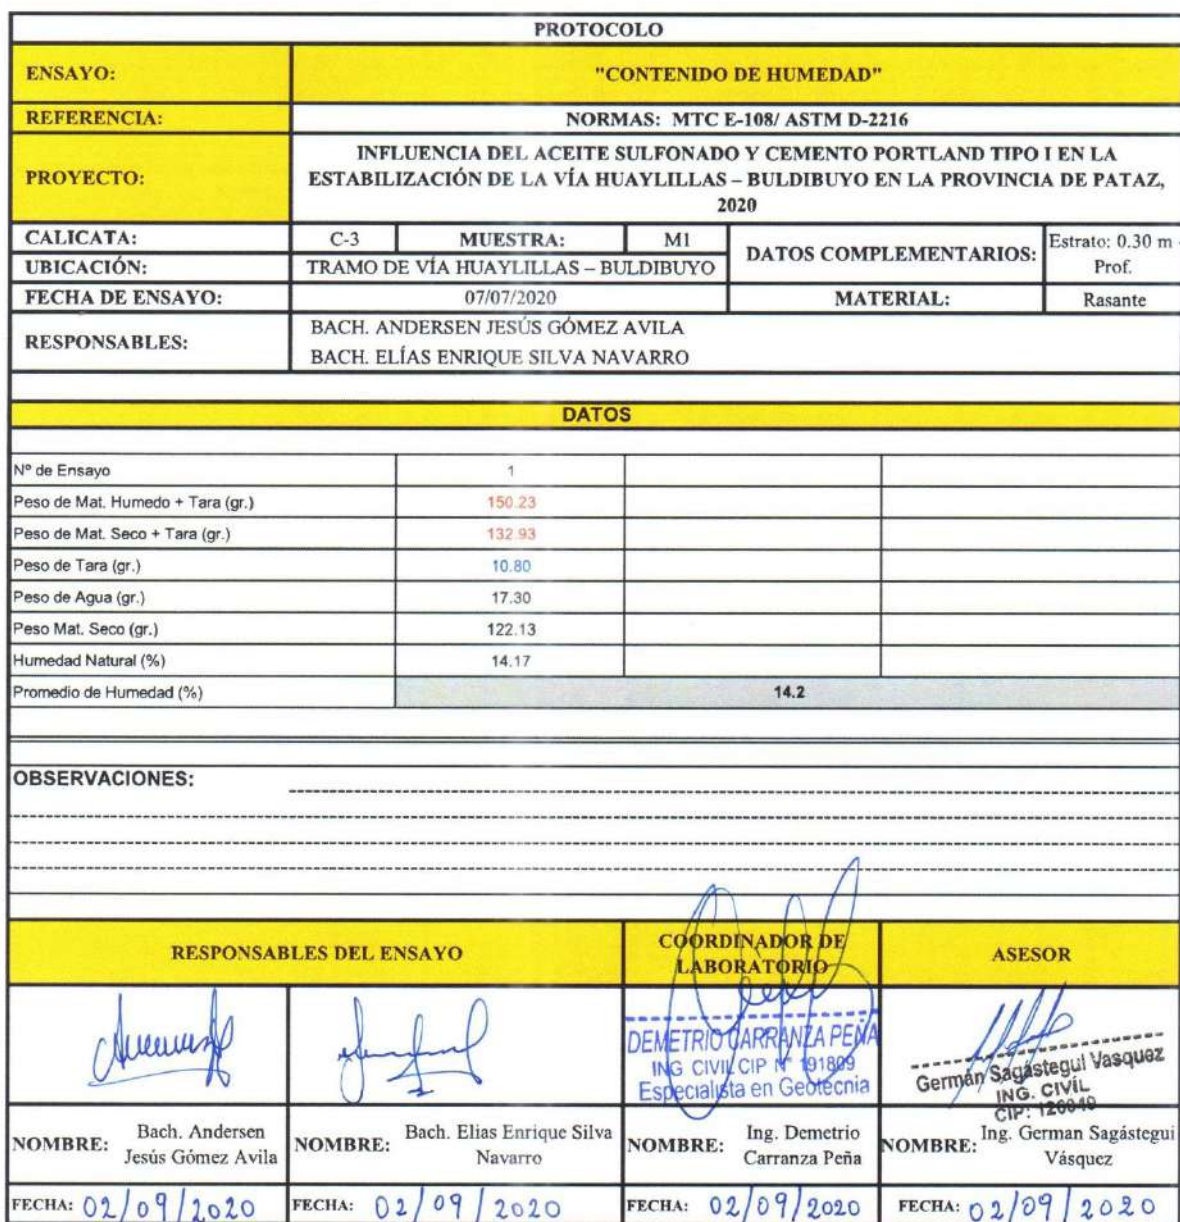 PROTOCOLO
ENSAYO: "CONTENIDO DE HUMEDAD"
REFERENCIA: NORMAS: MTC E-108/ ASTM D-2216
PROYECTO: INFLUENCIA DEL ACEITE SULFONADO Y CEMENTO PORTLAND TIPO I EN LA
ESTABILIZACIÓN DE LA VÍA HUAYLILLAS – BULDIBUYO EN LA PROVINCIA DE PATAZ,
2020
CALICATA: C-3 MUESTRA: M1 DATOS COMPLEMENTARIOS: Estrato: 0.30 m -
Prof.
UBICACIÓN: TRAMO DE VÍA HUAYLILLAS – BULDIBUYO
FECHA DE ENSAYO: 07/07/2020 MATERIAL: Rasante
RESPONSABLES: BACH. ANDERSEN JESÚS GÓMEZ AVILA
BACH. ELÍAS ENRIQUE SILVA NAVARRO
DATOS
Nº de Ensayo 1
Peso de Mat. Humedo + Tara (gr.) 150.23
Peso de Mat. Seco + Tara (gr.) 132.93
Peso de Tara (gr.) 10.80
Peso de Agua (gr.) 17.30
Peso Mat. Seco (gr.) 122.13
Humedad Natural (%) 14.17
Promedio de Humedad (%) 14.2
OBSERVACIONES:
RESPONSABLES DEL ENSAYO
COORDINADOR DE
LABORATORIO
ASESOR
DEMETRIO CARRANZA PEÑA
ING CIVIL CIP N° 191809
Especialista en Geotecnia
Germán Sagástegui Vasquez
ING. CIVIL
CIP:
NOMBRE: Bach. Andersen
Jesús Gómez Avila
NOMBRE: Bach. Elias Enrique Silva
Navarro
NOMBRE: Ing. Demetrio
Carranza Peña
NOMBRE: Ing. German Sagástegui
Vásquez
FECHA: 02/09/2020
FECHA: 02/09/2020
FECHA: 02/09/2020
FECHA: 02/09/2020